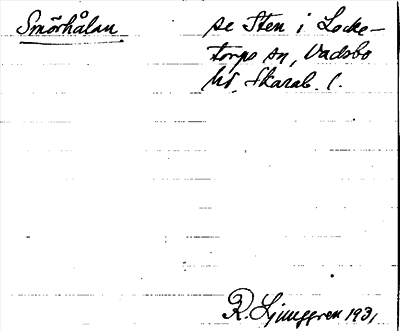 Smörhålan
se Sten i Locke-
torps sn, Vadsbo
hd, Skarab. l.
R. Ljunggren 1931